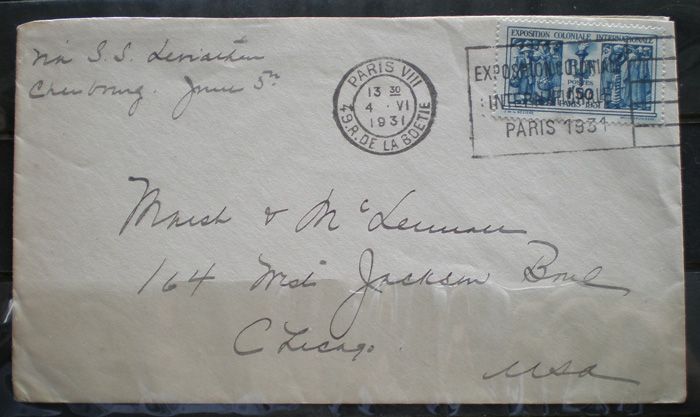 via S.S. Leviathan
Cherbourg. June 5th
PARIS VIII
13 30
4 · VI
1931
49.R. DE LA BOETIE
EXPOSITION COLONIALE INTERNATIONALE
POSTES
1F50
PARIS 1931
EXPOSITION COLONIALE
INTERNATIONALE
PARIS 1931
Marsh & McLennan
164 West Jackson Boul
Chicago.
USA